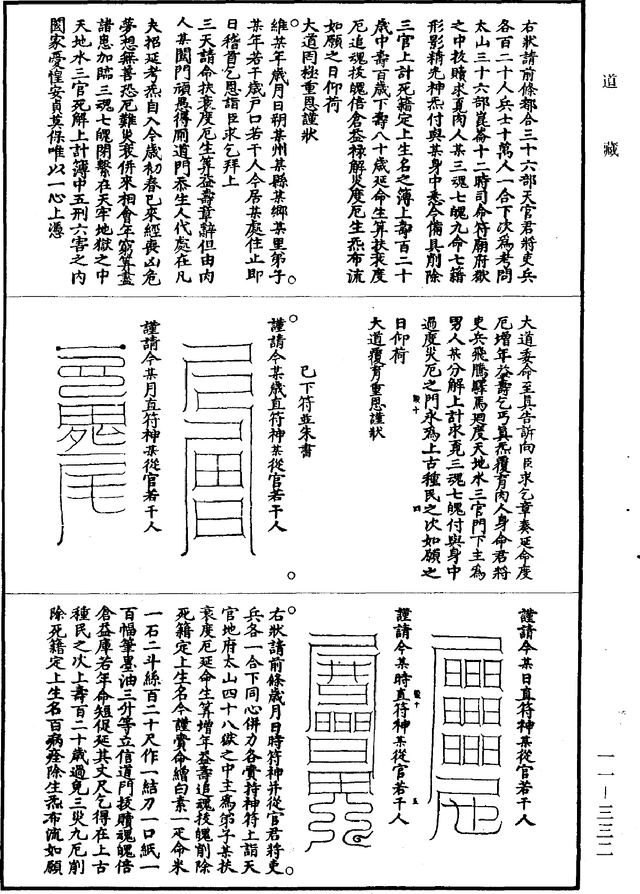 道藏
右狀請前條都合三十六部天官君將吏兵
各百二十人兵士十萬人一合下次為考問
太山三十六部崑崙十二時司命符廟府獄
之中拔贖求覓肉人某三魂七魄九命七籍
形影精光神炁付與某身中悉令備具削除
三官上計死籍定上生名之簿上壽百二十
歲中壽百歲下壽八十歲延命生算扶衰度
厄追魂拔魄倍倉益祿解災度厄生炁布流
如願之日仰荷
大道罔極重恩謹狀
維某年歲月日朔某州某縣某鄉某里弟子
某年若干歲戶口若干人今居某處住止即
日稽首乞恩詣臣求乞拜上
三天請命扶衰度厄生算益壽章辭但由肉
人某閤門頑愚得廁道門忝生人代處在凡
夫招延考炁自入今歲初春已來經喪凶危
夢想無善恐厄難災衰併來相會年窮算盡
諸患加臨三魂七魄閉繫在天牢地獄之中
天地水三官死解上計簿中五刑六害之內
闔家憂惶安貞莫保唯以一心上憑
大道委命至真告訴向臣求乞章奏延命度
厄增年益壽乞丐真炁覆育肉人身命君將
吏兵飛騰驛馬迴度天地水三官門下主為
男人某分解上計求覓三魂七魄付與身中
過度災厄之門永為上古種民之次如願之
日仰荷
大道覆育重恩謹狀
已下符並朱書
謹請今某歲直符神某從官若干人
謹請今某月直符神某從官若干人
謹請今某日直符神某從官若干人
謹請今某時直符神某從官若干人
右狀請前條歲月日時符神并從官君將吏
兵各一合下同心併力各賫持神符上詣天
官地府太山四十八獄之中主為弟子某扶
衰度厄延命生算增年益壽追魂拔魄削除
死籍定上生名今謹賫命繒白素一疋命米
一石二斗絲百二十尺作一結刀一口紙一
百幅筆墨油三分等立信道門拔贖魂魄倍
倉益庫若年命短促延其丈尺乞得在上古
種民之次上壽百二十歲過免三災九厄削
除死籍定上生名百病痊除生炁布流如願
一一-三三二